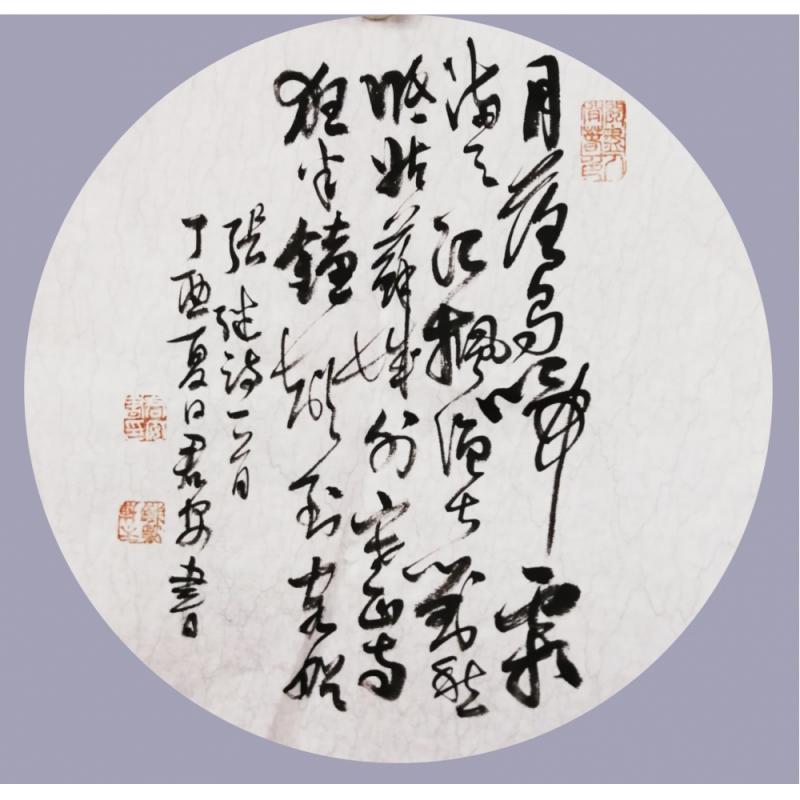 閱盡人間春色
月落烏啼霜
滿天江楓漁火對愁
眠姑蘇城外寒山寺
夜半鐘聲到客船
张继诗一首
丁酉夏日君安書